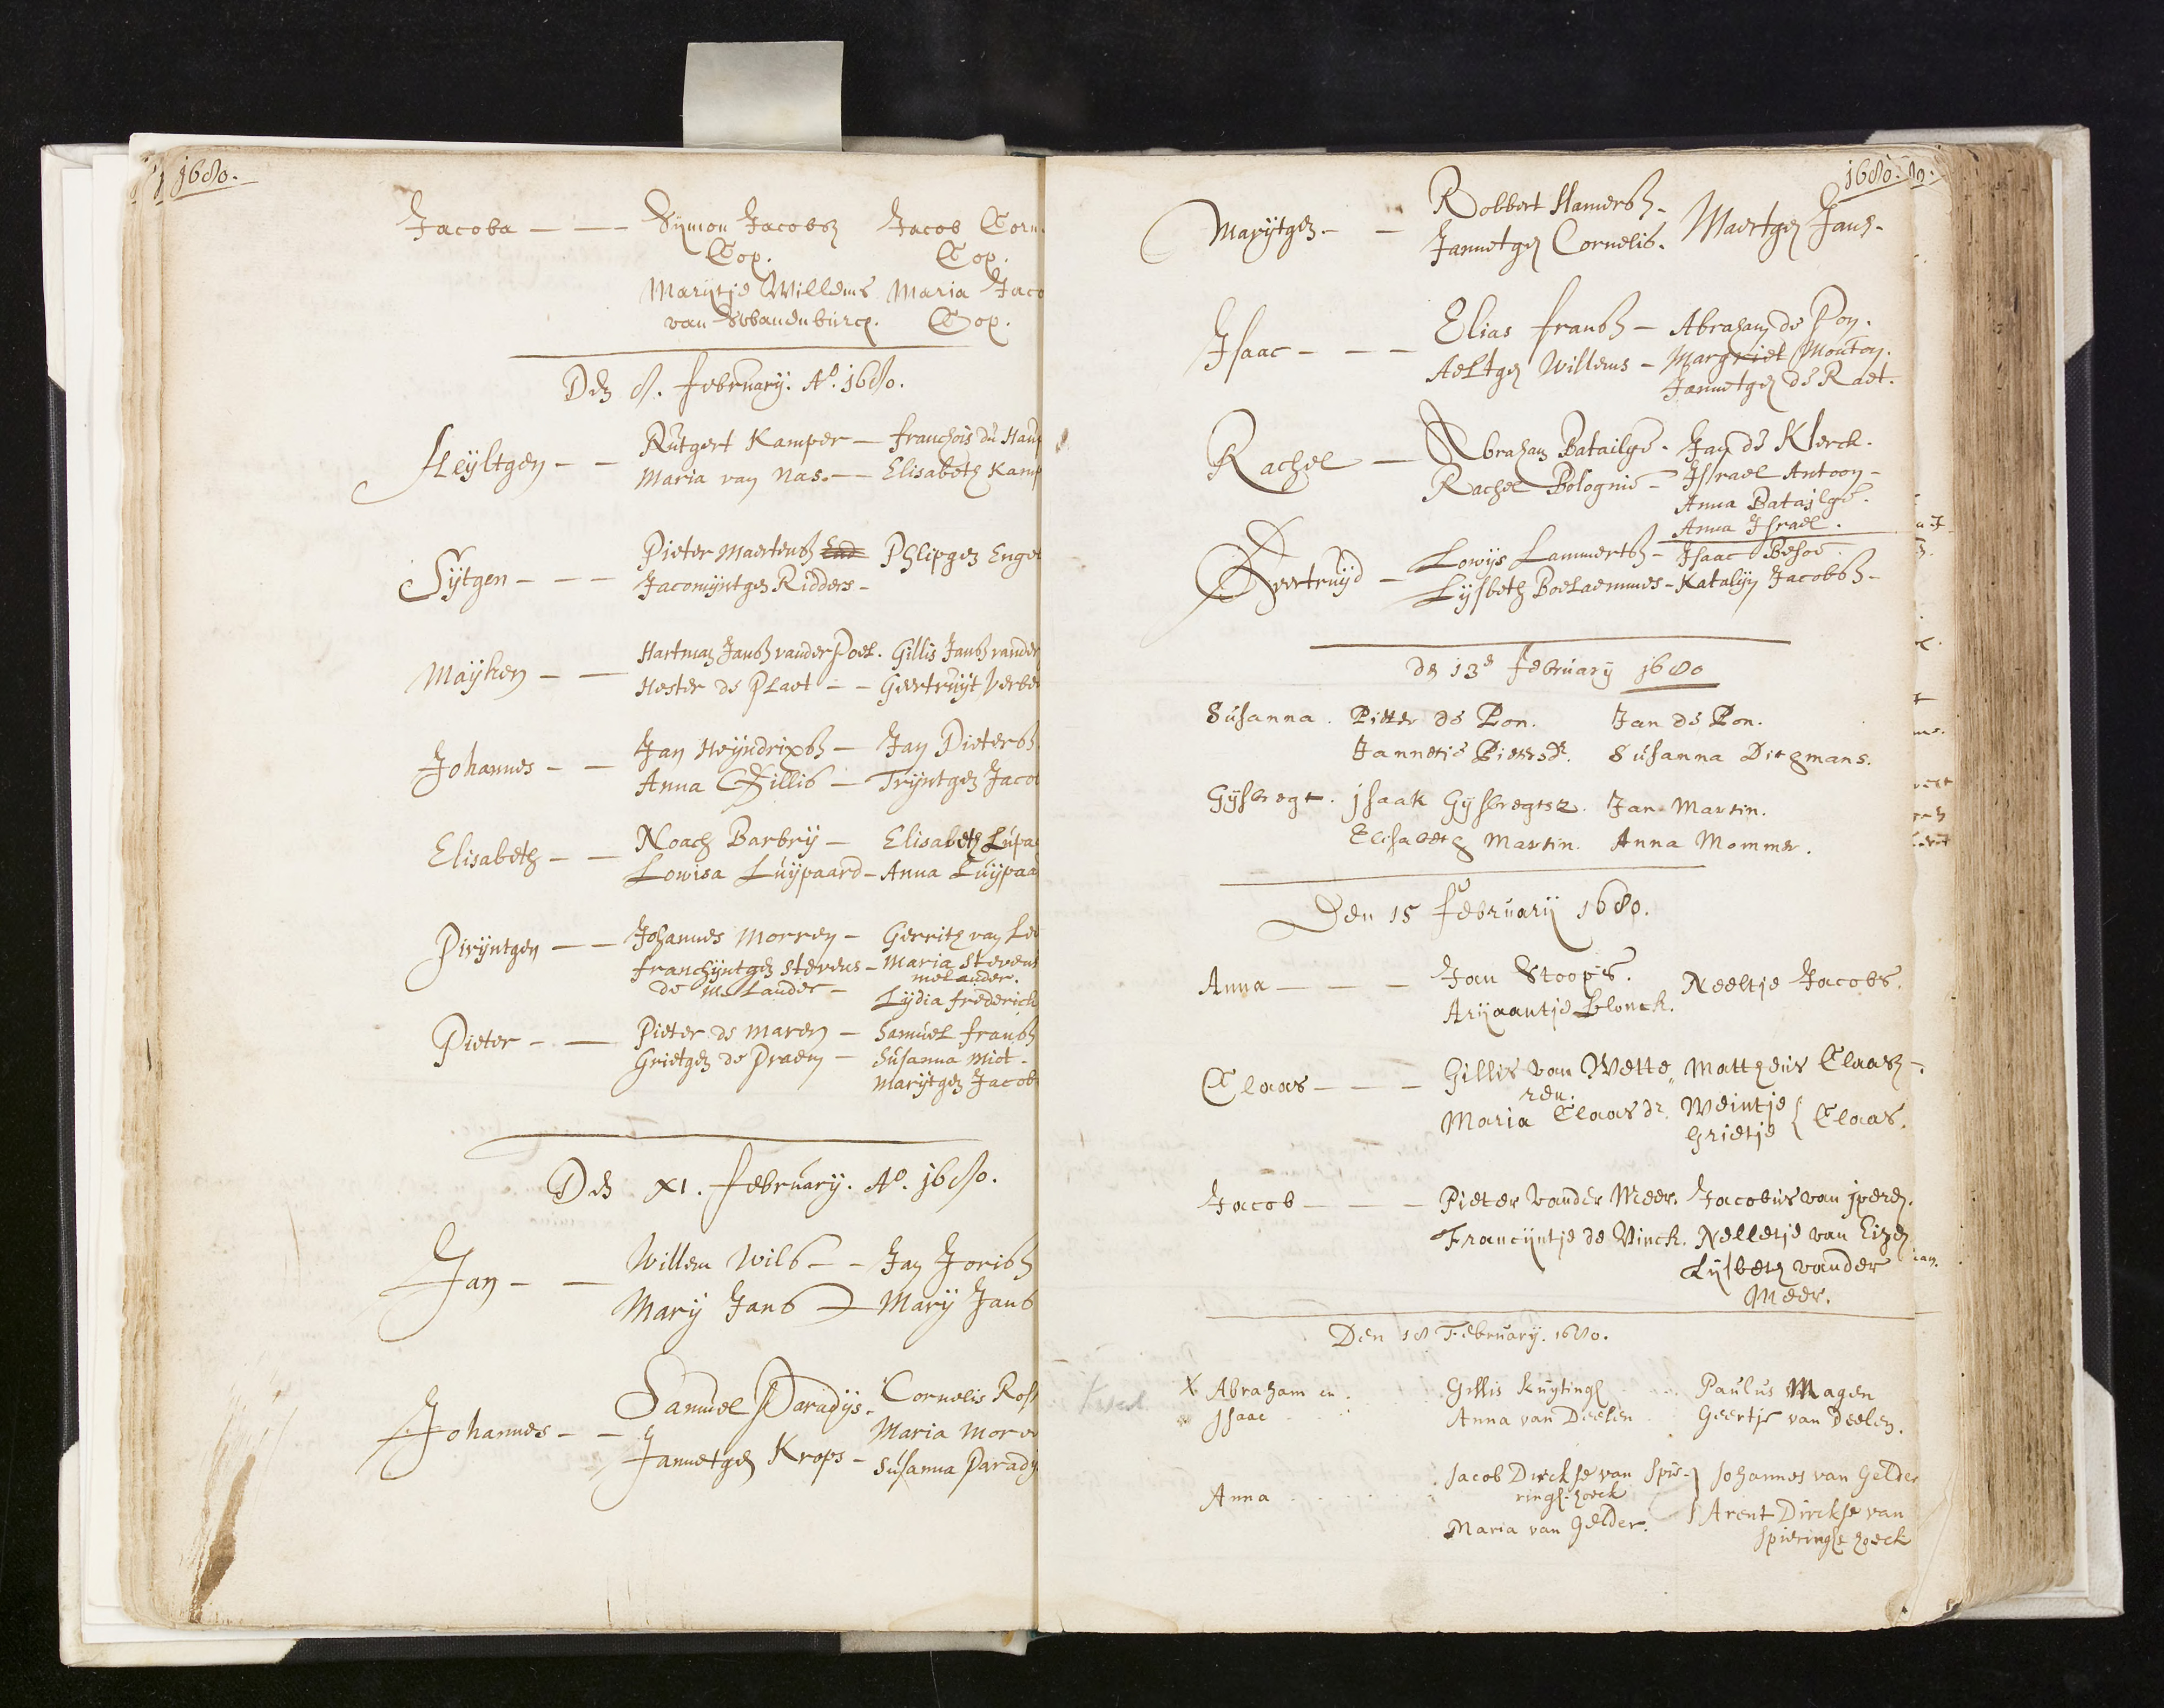 1680.
Jacoba — — — Sijmon Jacobsz Jacob Corn
Cop. Cop.
Marijtje Willems Maria Jaco
van Swanenburch. Cop.
Den 8. february. Ao. 1680.
Heijltgen — — Rutgert Kamper — franchois du Hau
Maria van Nas. — — Elisabeth Kamp
Sijtgen — — — Pieter Maertensz Phlipgen Engel
Jacomijntgen Ridders —
Maijken — — Hartman Jansz vander Poel. Gillis Jansz vander
Hester de Plaet — — Geertruijt Verbe
Johannes — — Jan Heijndrixsz — Jan Pietersz
Anna Gillis — Trijntgen Jacob
Elisabeth — — Noach Barbrij — Elisabeth Lupa
Lowisa Luijpaard — Anna Luijpaa
Pirijntgen — — Johannes Morren — Gerrith van Le
franchijntgen Stevens — Maria Stevens
de Me Lander — melander.
Lijdia frederick
Pieter — — Pieter de Maren — Samuel fransz
Grietgen de Praem — Susanna Miot —
Marijtgen Jacob
Den XI. february. Ao. 1680.
Jan — — Willem Wils — — Jan Jorisz
Marij Jans — Marij Jans
Johannes — — Samuel Paradijs. Cornelis Ros
Maria More
Jannetgen Krops — Susanna Parady
1680.
Marijtgen — — Robbert Hamersz —
Jannetgen Cornelis. Maertgen Jans —
Isaac — — — Elias fransz — Abraham de Pon.
Aeltgen Willems — Margriet Mouton.
Jannetgen de Raet.
Rachel — Abraham Batailge. Jan de Klerck.
Rachel Bolognie — Israel Antoon —
Anna Batailge.
Anna Israel.
Geertruijd — Lowijs Lammertsz — Isaac Besoe.
Lijsbeth Boelaemmes — Katalijn Jacobsz —
den 13e february 1680
Susanna. Pieter de Pon. Jan de Pon.
Jannetie Pietersdr. Susanna Diegmans.
Gijsbregt. jsaak Gijsbregtsz. Jan Martin.
Elisabeth Martin. Anna Mommer.
Den 15 february 1680.
Anna — — — Jan Stoopes. Neeltje Jacobs.
Arijaantje Blonck.
Claas — — — Gillis van Wette Mattheus Claasz —.
ren.
Maria Claasdr. Weintje
Grietje { Claas.
Jacob — — — Pieter vander Meer. Jacobus van jperen.
Francijntje de Vinck. Nelletje van Eizen
Lijsbeth vander
Meer.
Den 18 February. 1680.
X Abraham en Gillis kuytingh Paulus Magen
Jsaac Anna van Deelen Geertje van Deelen.
Anna Jacob Dirckse van Spie- Johannes van Gelder
ringshoeck
Maria van Gelder. Arent Dirckse van
Spieringshoeck